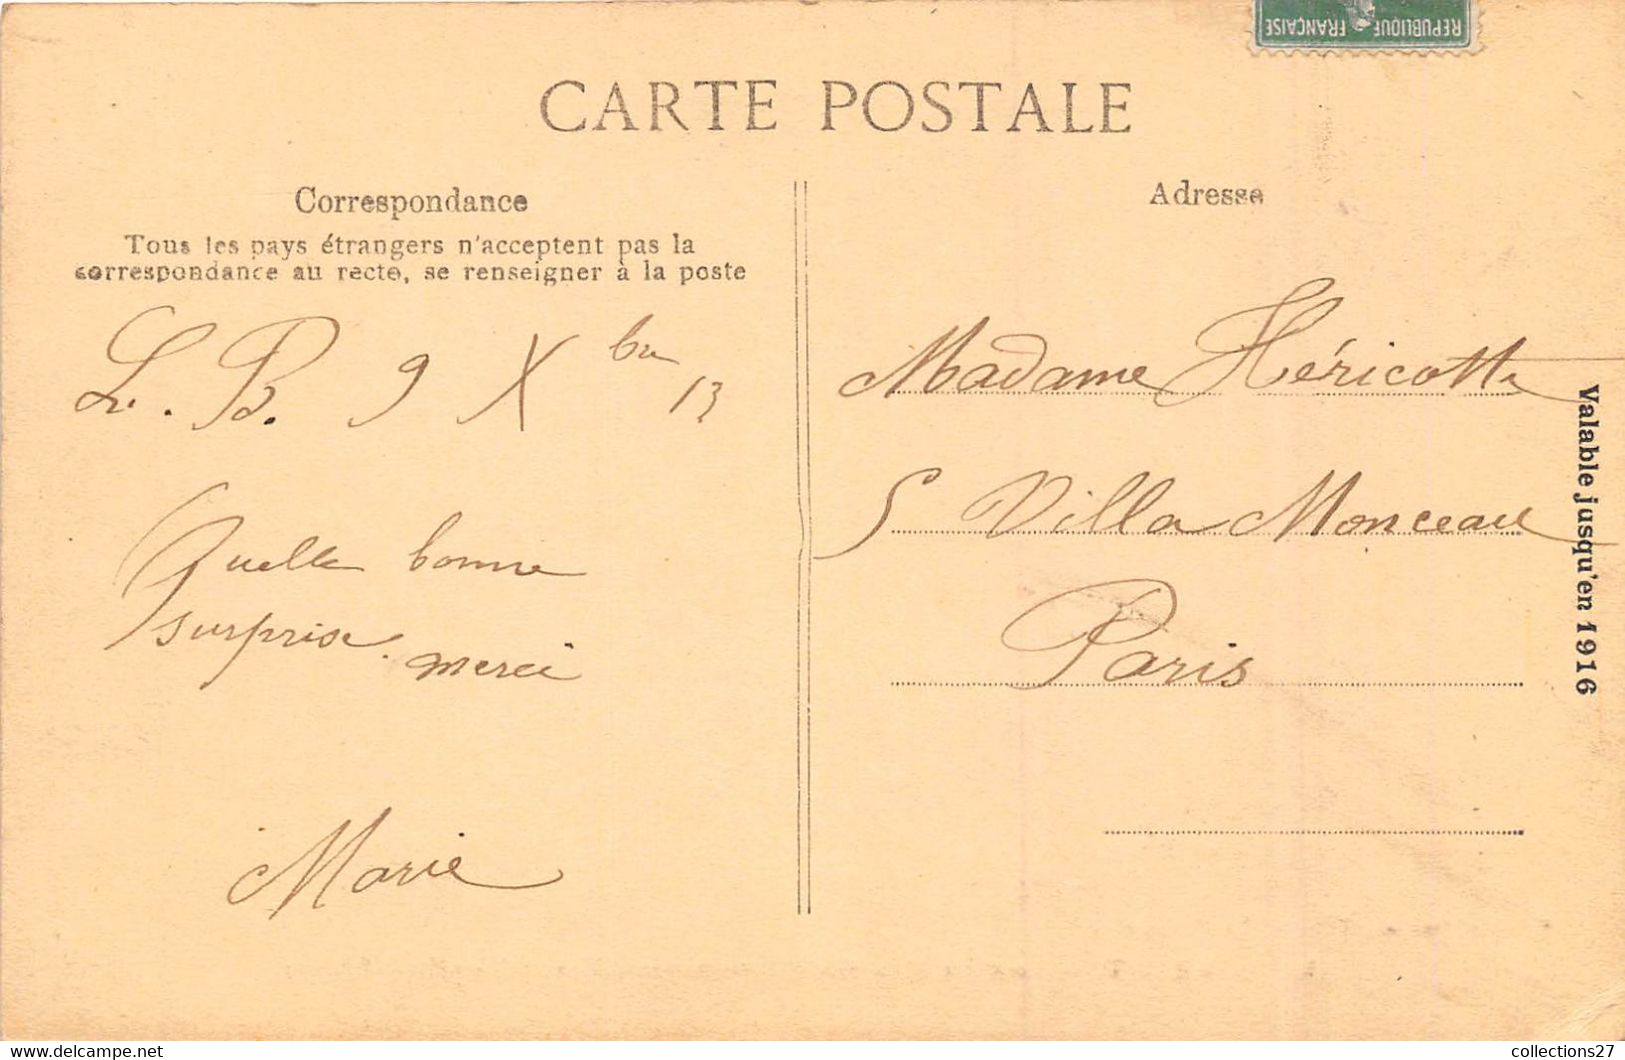 REPUBLIQUE FRANÇAISE
CARTE POSTALE
Correspondance
Tous les pays étrangers n'acceptent pas la
correspondance au recto, se renseigner à la poste
L. B. 9 Xbre 13
Quelle bonne
surprise. merci
Marie
Adresse
Madame Héricotte
5 Villa Monceau
Paris
Valable jusqu'en 1916
www.delcampe.net
collections27